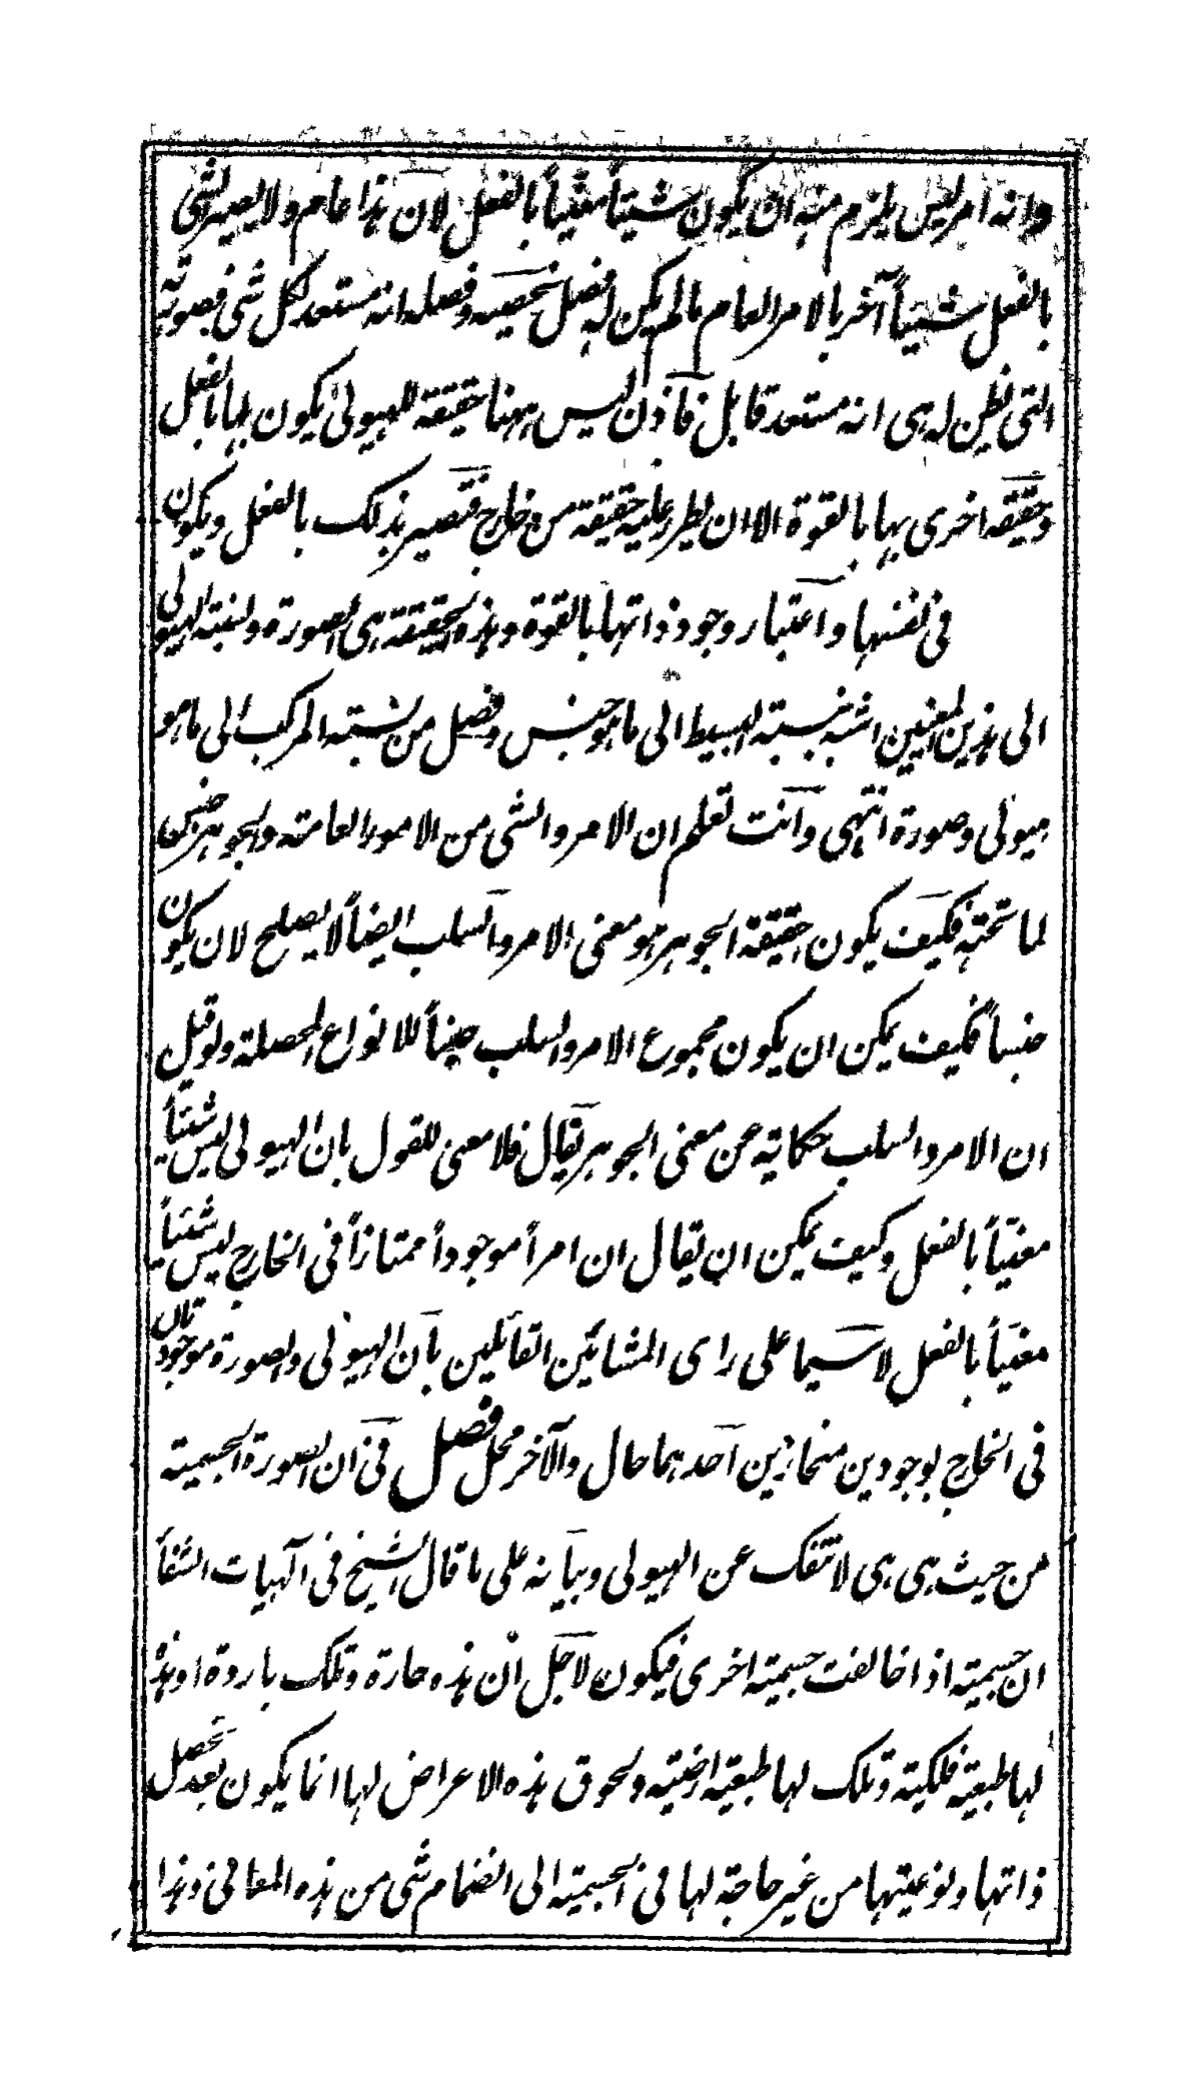 وانه امر ليس يلزم منه ان يكون شيئاً معيناً بالفعل لان هذا عام ولا يصير الشئ
بالفعل شيئاً آخر بالامر العام مالم يكن له فصل يخصه وفصله انه مستعد لكل شئ فصورته
التى تظن له هى انه مستعد قابل فاذن ليس ههنا حقيقة للهيولى يكون بها بالفعل
وحقيقه اخرى بها بالقوة الا ان يطرء عليه حقيقة من خارج فتصير بذلك بالفعل ويكون
فى نفسها واعتبار وجود ذاتها بالقوة وهذه الحقيقة هى الصورة ونسبة الهيولى
الى هذين المعنيين اشبه بنسبة البسيط الى ما هو جنس وفصل من نسبة المركب الى ما هو
هيولى وصورة انتهى وانت تعلم ان الامر والشئ من الامور العامة والجوهر جنس
لما تحته فكيف يكون حقيقة الجوهر هو معنى الامر والسلب ايضاً لا يصلح لان يكون
جنساً فكيف يمكن ان يكون مجموع الامر والسلب جنساً للانواع المحصلة ولو قيل
ان الامر والسلب حكاية عن معنى الجوهر يقال فلا معنى للقول بان الهيولى ليس شيئاً
معيناً بالفعل وكيف يمكن ان يقال ان امراً موجوداً ممتازاً فى الخارج ليس شيئاً
معيناً بالفعل لا سيما على راى المشائين القائلين بان الهيولى والصورة موجودتان
فى الخارج بوجودين منحازين احدهما حال والآخر محل فصل فى ان الصورة الجسمية
من حيث هى هى لا تنفك عن الهيولى وبيانه على ما قال الشيخ فى آلهيات الشفأ
ان جسمية اذا خالفت جسمية اخرى فيكون لاجل ان هذه حارة وتلك باردة او هذه
لها طبيعة فلكية وتلك لها طبيعة ارضية ولحوق هذه الاعراض لها انما يكون بعد تحصل
ذاتها ونوعيتها من غير حاجة لها فى الجسمية الى انضمام شئ من هذه المعانى وهذا